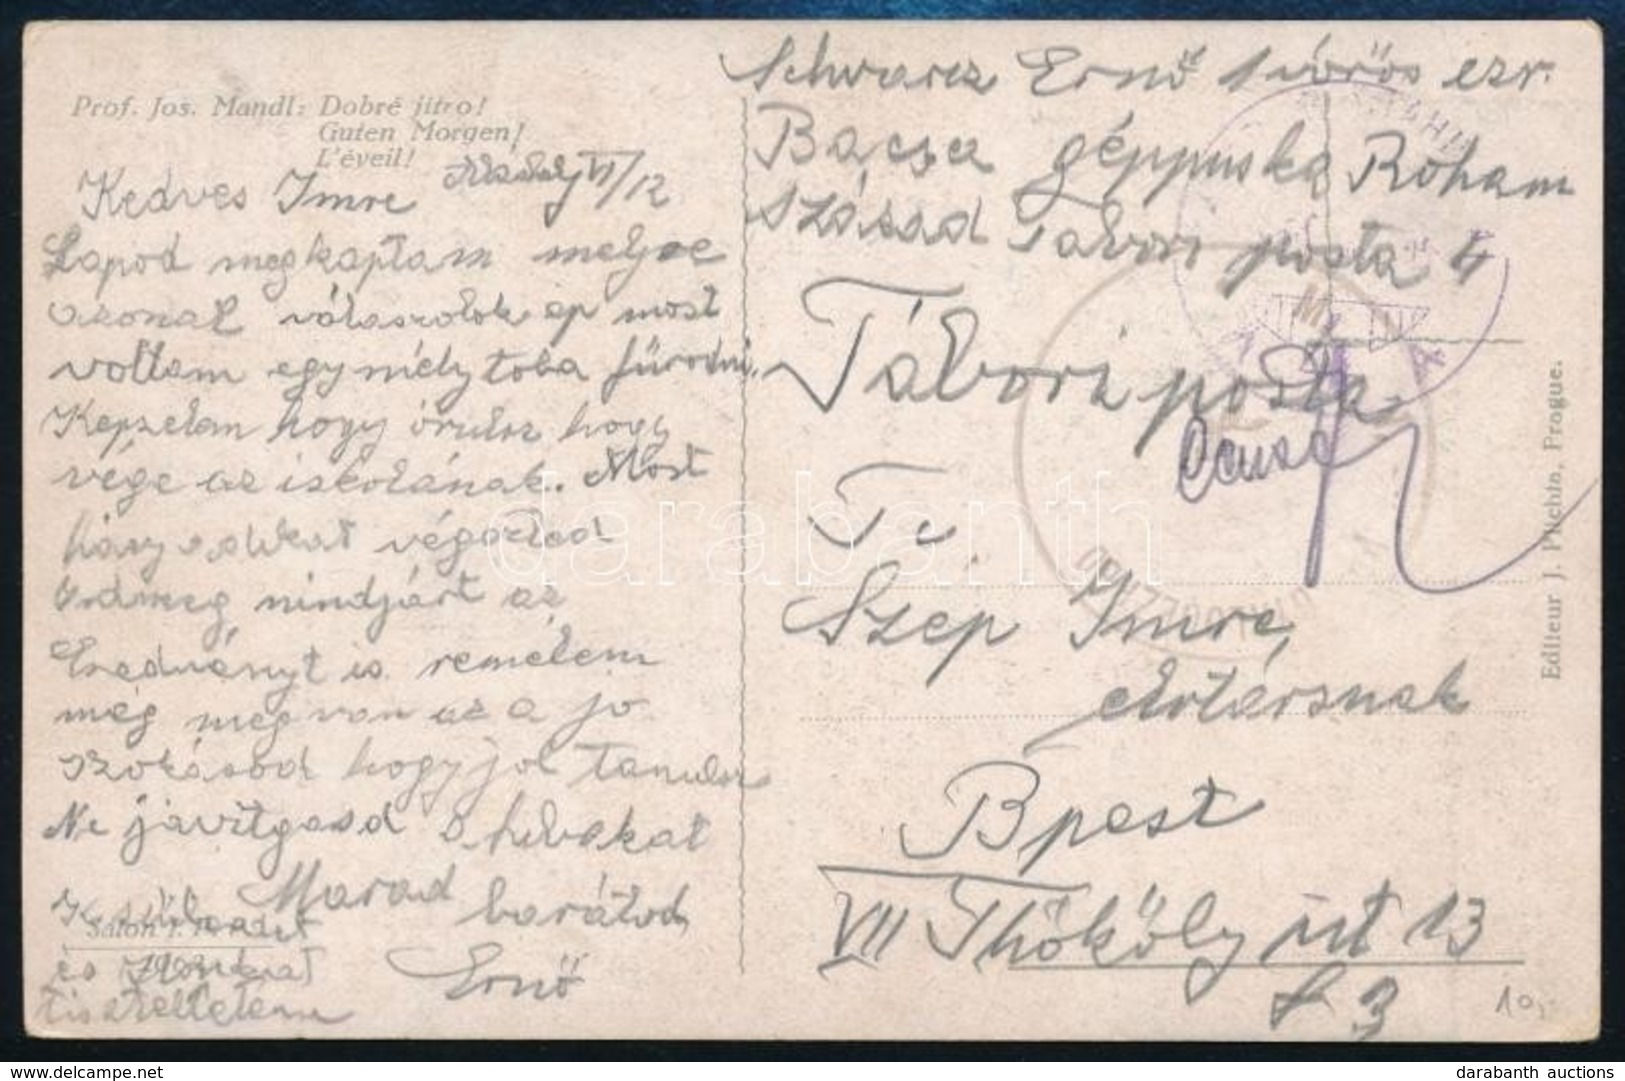 Prof. Jos. Mandl: Dobré jitro!
Guten Morgen!
L'éveil!
Kedves Imre VI/12
Lapod megkaptam melyre
azonal válaszolok ep most
voltam egy mély toba fürödni.
Kepzelem hogy örülsz hogy
vége az iskolának. Most
végezted
mindjárt az
Eredményt is remélem
még meg van az a jo
szokásod hogy jol tanulsz
Ne javitgasd a hibakat
Marad
barátod
Ernő
és
tisztelletem
Schwarcz Ernő 1 vörös ezr.
Bacsa géppuska Roham
Század Tabori posta 4
Tábori posta
Te.
Szép Imre,
elvtársnak
Bpest
VII Thököly út 13
f 3
10,-
Editeur J. Plichta, Prague.
darabanth
darabanth auctions